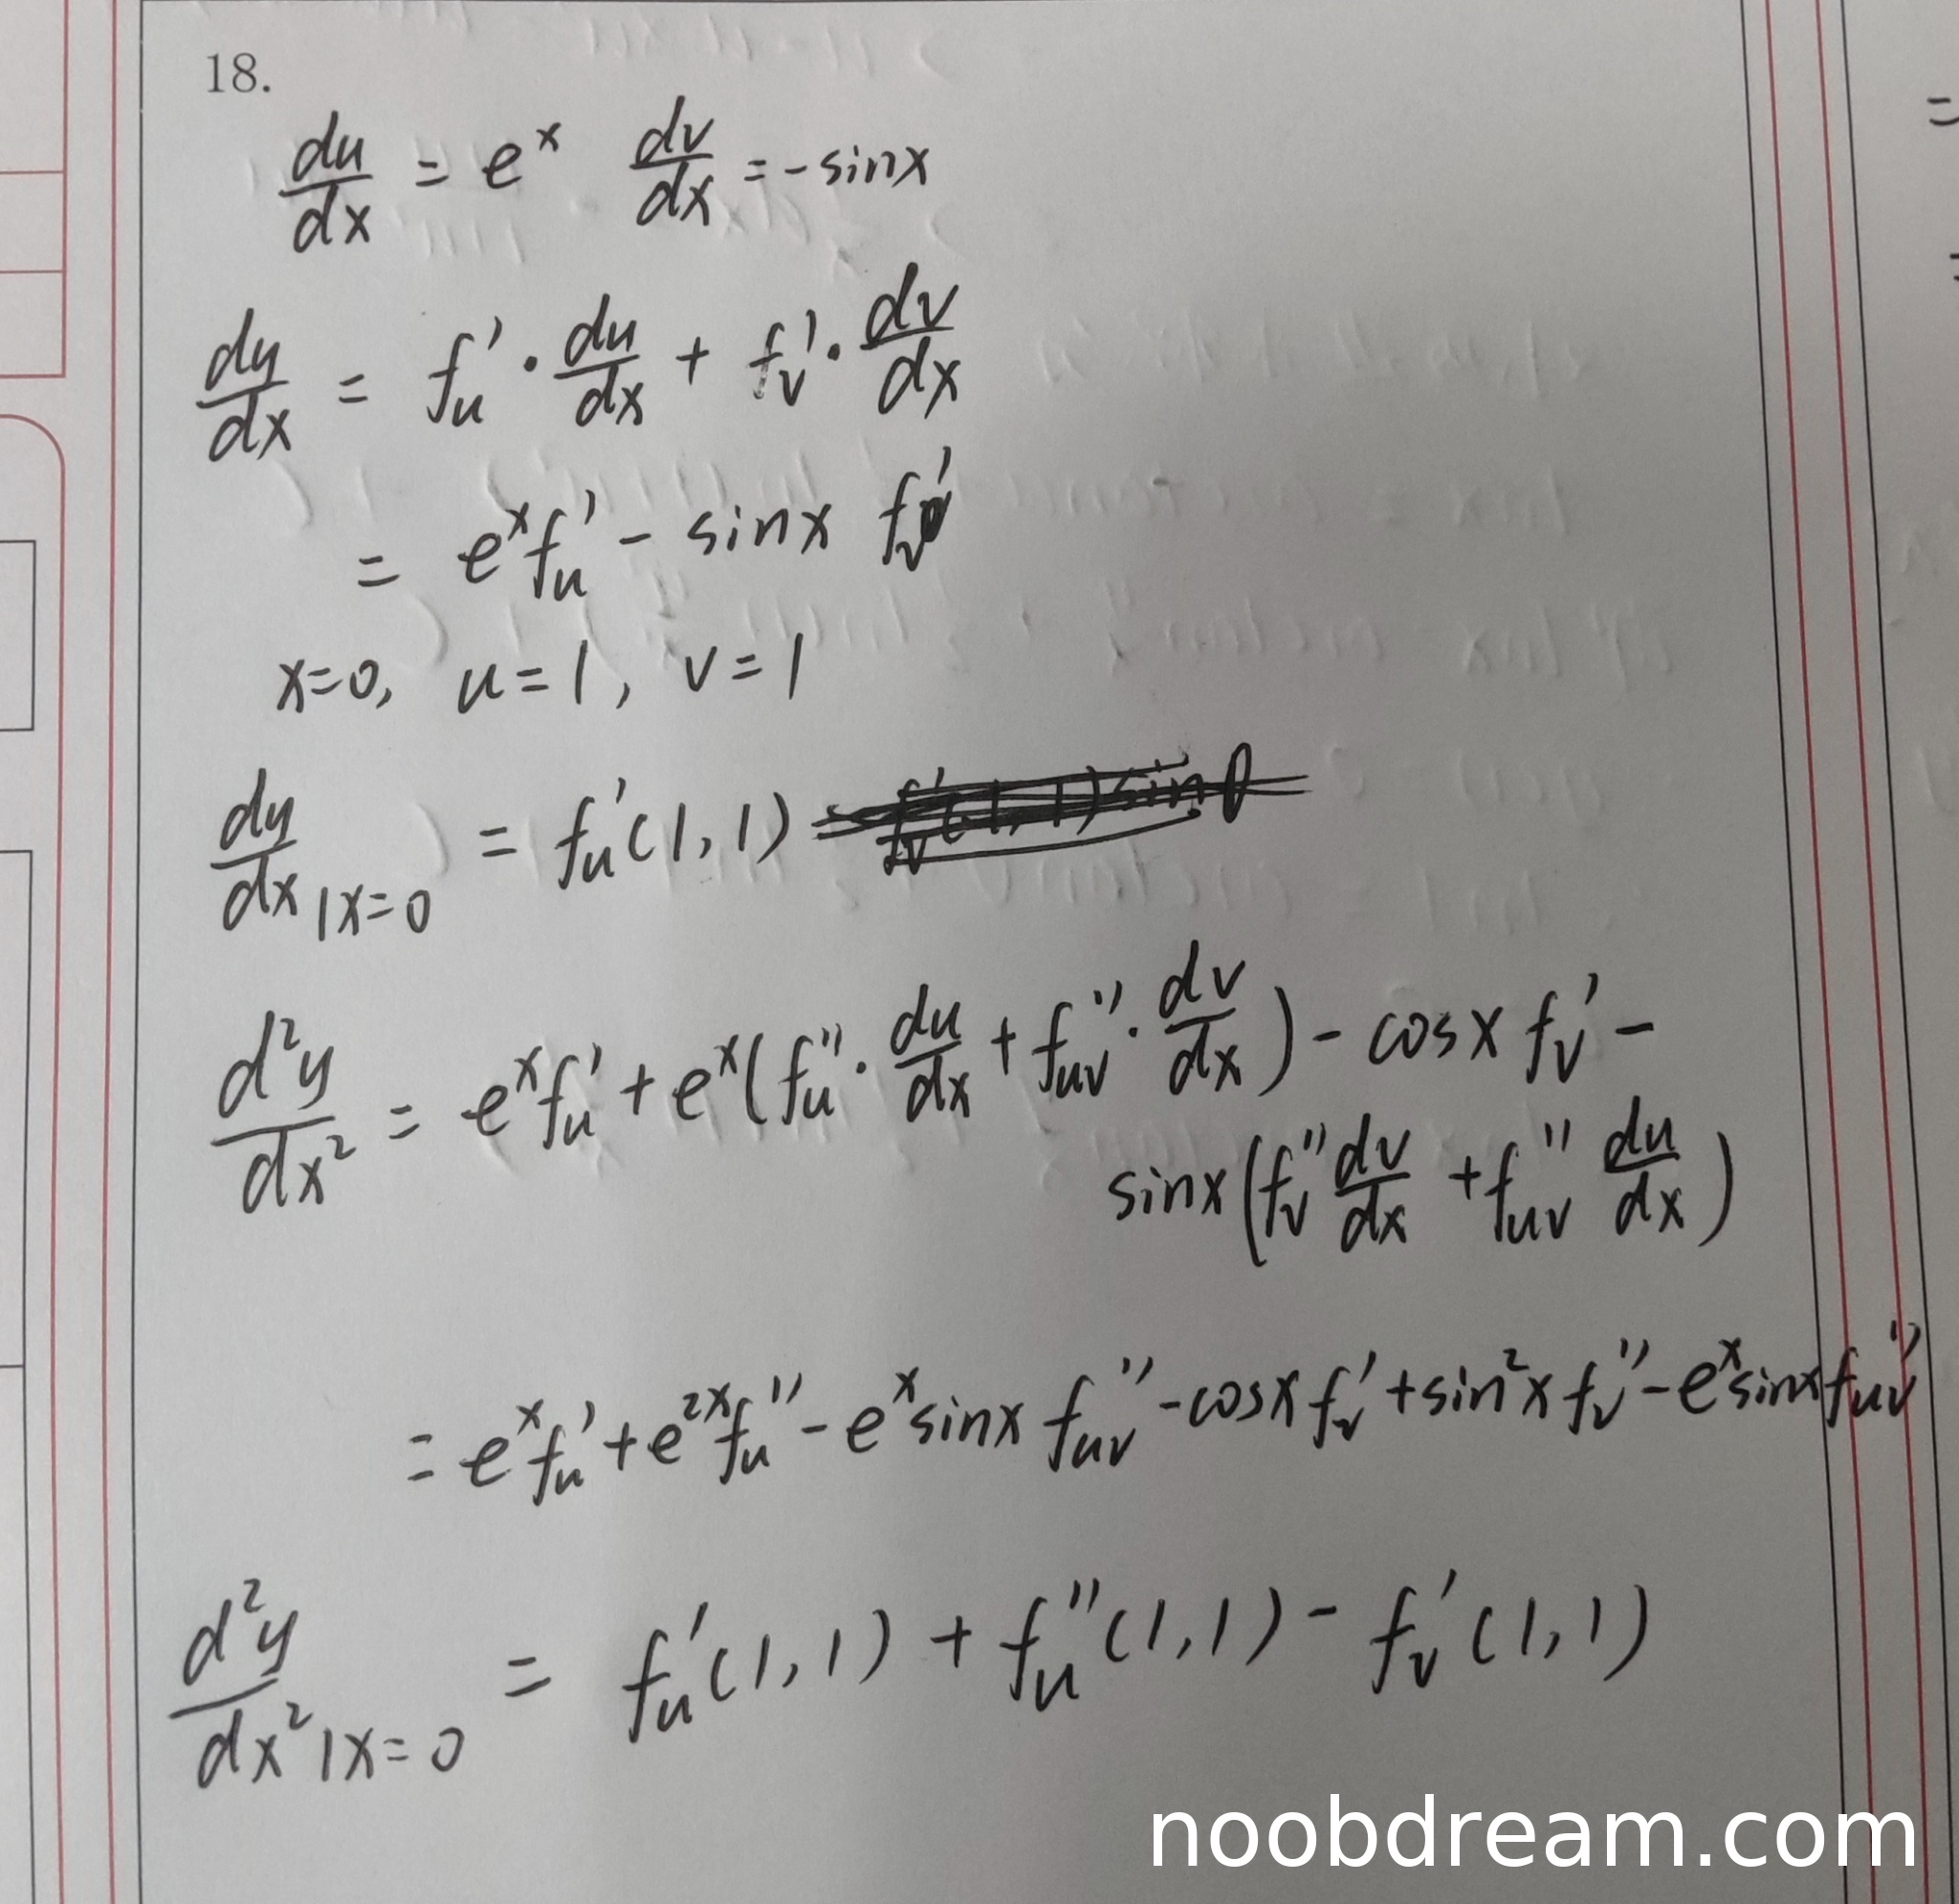 18.
du/dx = e^x dv/dx = -sinx
dy/dx = f_u' · du/dx + f_v' · dv/dx
= e^x f_u' - sinx f_v'
x=0, u=1, v=1
dy/dx |x=0 = f_u'(1,1)
d²y/dx² = e^x f_u' + e^x(f_u'' · du/dx + f_uv'' · dv/dx) - cosx f_v' -
sinx(f_v'' dv/dx + f_uv'' du/dx)
= e^x f_u' + e^2x f_u'' - e^x sinx f_uv'' - cosx f_v' + sin²x f_v'' - e^x sinx f_uv''
d²y/dx² |x=0 = f_u'(1,1) + f_u''(1,1) - f_v'(1,1)
noobdream.com